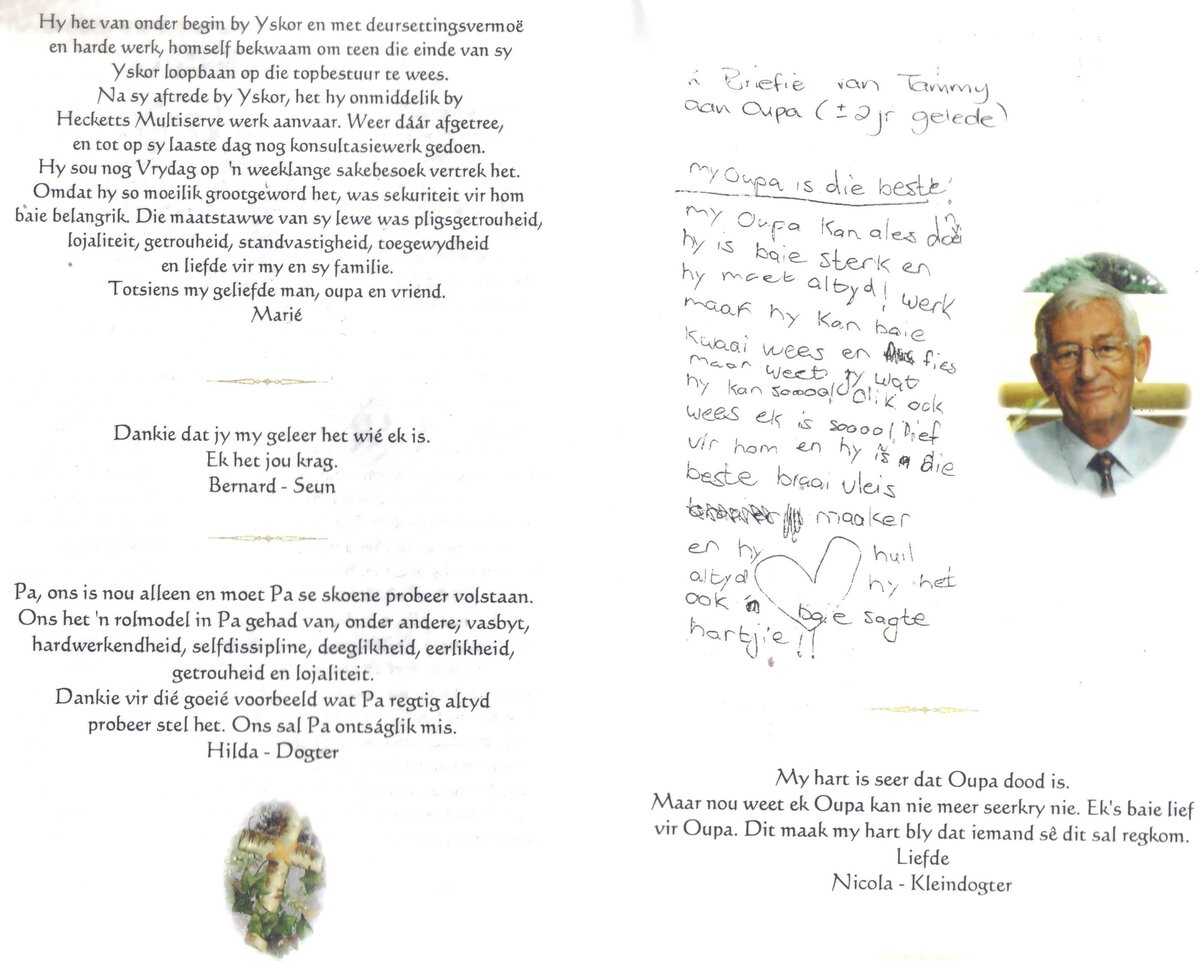 Hy het van onder begin by Yskor en met deursettingsvermoë
en harde werk, homself bekwaam om teen die einde van sy
Yskor loopbaan op die topbestuur te wees.
Na sy aftrede by Yskor, het hy onmiddelik by
Hecketts Multiserve werk aanvaar. Weer dáár afgetree,
en tot op sy laaste dag nog konsultasiewerk gedoen.
Hy sou nog Vrydag op 'n weeklange sakebesoek vertrek het.
Omdat hy so moeilik grootgeword het, was sekuriteit vir hom
baie belangrik. Die maatstawwe van sy lewe was pligsgetrouheid,
lojaliteit, getrouheid, standvastigheid, toegewydheid
en liefde vir my en sy familie.
Totsiens my geliefde man, oupa en vriend.
Marié
Dankie dat jy my geleer het wié ek is.
Ek het jou krag.
Bernard - Seun
Pa, ons is nou alleen en moet Pa se skoene probeer volstaan.
Ons het 'n rolmodel in Pa gehad van, onder andere; vasbyt,
hardwerkendheid, selfdissipline, deeglikheid, eerlikheid,
getrouheid en lojaliteit.
Dankie vir dié goeié voorbeeld wat Pa regtig altyd
probeer stel het. Ons sal Pa ontságlik mis.
Hilda - Dogter
'n Briefie van Tammy
aan Oupa (± 2 jr gelede)
my Oupa is die beste!
my Oupa kan ales doen
hy is baie sterk en
hy moet altyd! werk
maar hy kan baie
kwaai wees en fies
maar weet jy wat
hy kan soooo! olik ook
wees ek is soooo! lief
vir hom en hy is die
beste braai vleis
maaker
en hy huil
altyd hy het
ook 'n baie sagte
hartjie!!
My hart is seer dat Oupa dood is.
Maar nou weet ek Oupa kan nie meer seerkry nie. Ek's baie lief
vir Oupa. Dit maak my hart bly dat iemand sê dit sal regkom.
Liefde
Nicola - Kleindogter